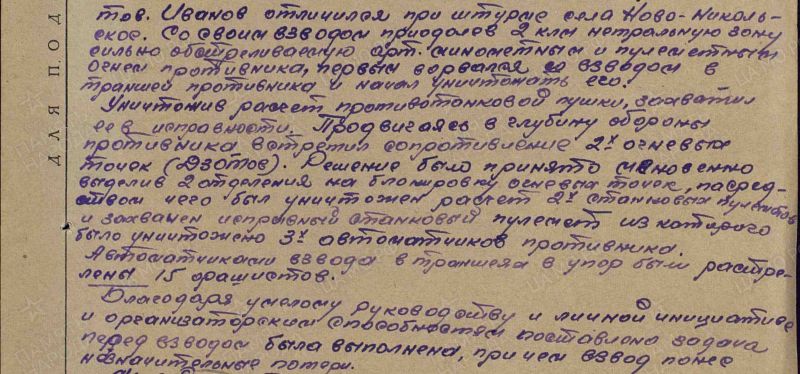 тов. Иванов отличился при штурме села Ново-Николь-
ское. Со своим взводом приодолев 2 клм нетральную зону
сильно обстреливаемую арт. минометным и пулеметным
огнем противника, первым ворвался со взводом в
траншеи противника и начал уничтожать его.
Уничтожив расчет противотанковой пушки, захватил
ее в исправности. Продвигаясь в глубину обороны
противника встретил сопротивление 2х огневых
точек (Дзотов). Решение было принято мгновенно
выделив 2 отделения на блокировку огневых точек, посред-
ством чего был уничтожен расчет 2х станковых пулеметов
и захвачен исправный станковый пулемет из которого
было уничтожено 3х автоматчиков противника.
Автоматчиками взвода в траншеях в упор были расстре-
лены 15 фашистов.
Благодаря умелому руководству и личной инициативе
и организаторским способностям поставлена задача
перед взводом была выполнена, при чем взвод понес
незначительные потери.
ДЛЯ ПОД